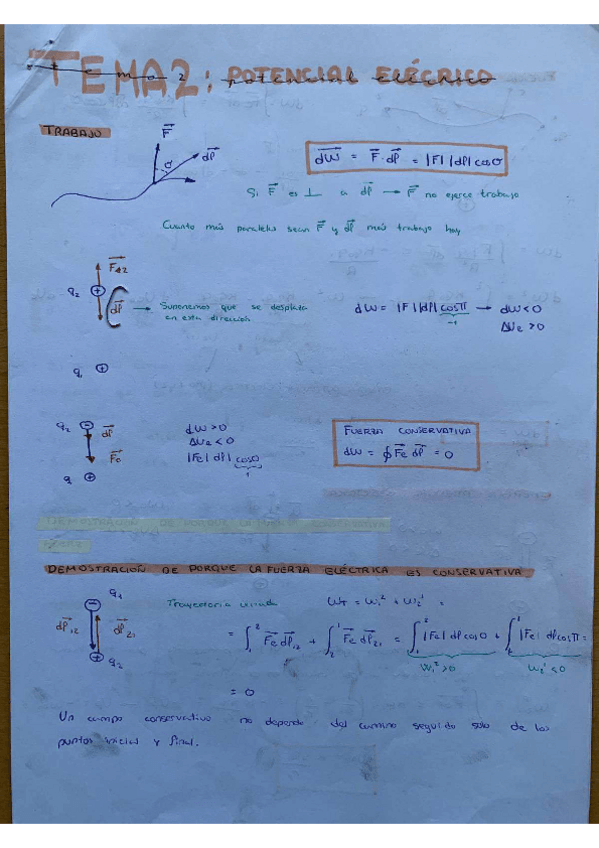 TEMA 2: POTENCIAL ELÉCRICO
TRABAJO
F
dl
σ
dW = F · dl = |F| |dl| cos σ
Si F es ⊥ a dl → F no ejerce trabajo
Cuanto más paralelas sean F y dl más trabajo hay
F12
q2 +
dl → Suponemos que se desplaza
en esta dirección
dW = |F| |dl| cos π → dW < 0
-1
ΔUe > 0
q1 +
q2 −
dl
Fe
q +
dW > 0
ΔUe < 0
|Fe| dl| cos 0
1
FUERZA CONSERVATIVA
dW = ∮ Fe dl = 0
DEMOSTRACIÓN DE PORQUE LA FUERZA CONSERVATIVA
DEMOSTRACIÓN DE PORQUE LA FUERZA ELÉCTRICA ES CONSERVATIVA
q1
−
dl12
dl21
+ q2
Trayectoria cerrada
WT = W1² + W2¹ =
= ∫1² Fe dl12 + ∫2¹ Fe dl21 = ∫1² |Fe| dl cos 0 + ∫2¹ |Fe| dl cos π =
W1² > 0
W2¹ < 0
= 0
Un campo conservativo no depende del camino seguido solo de los
puntos inicial y final.